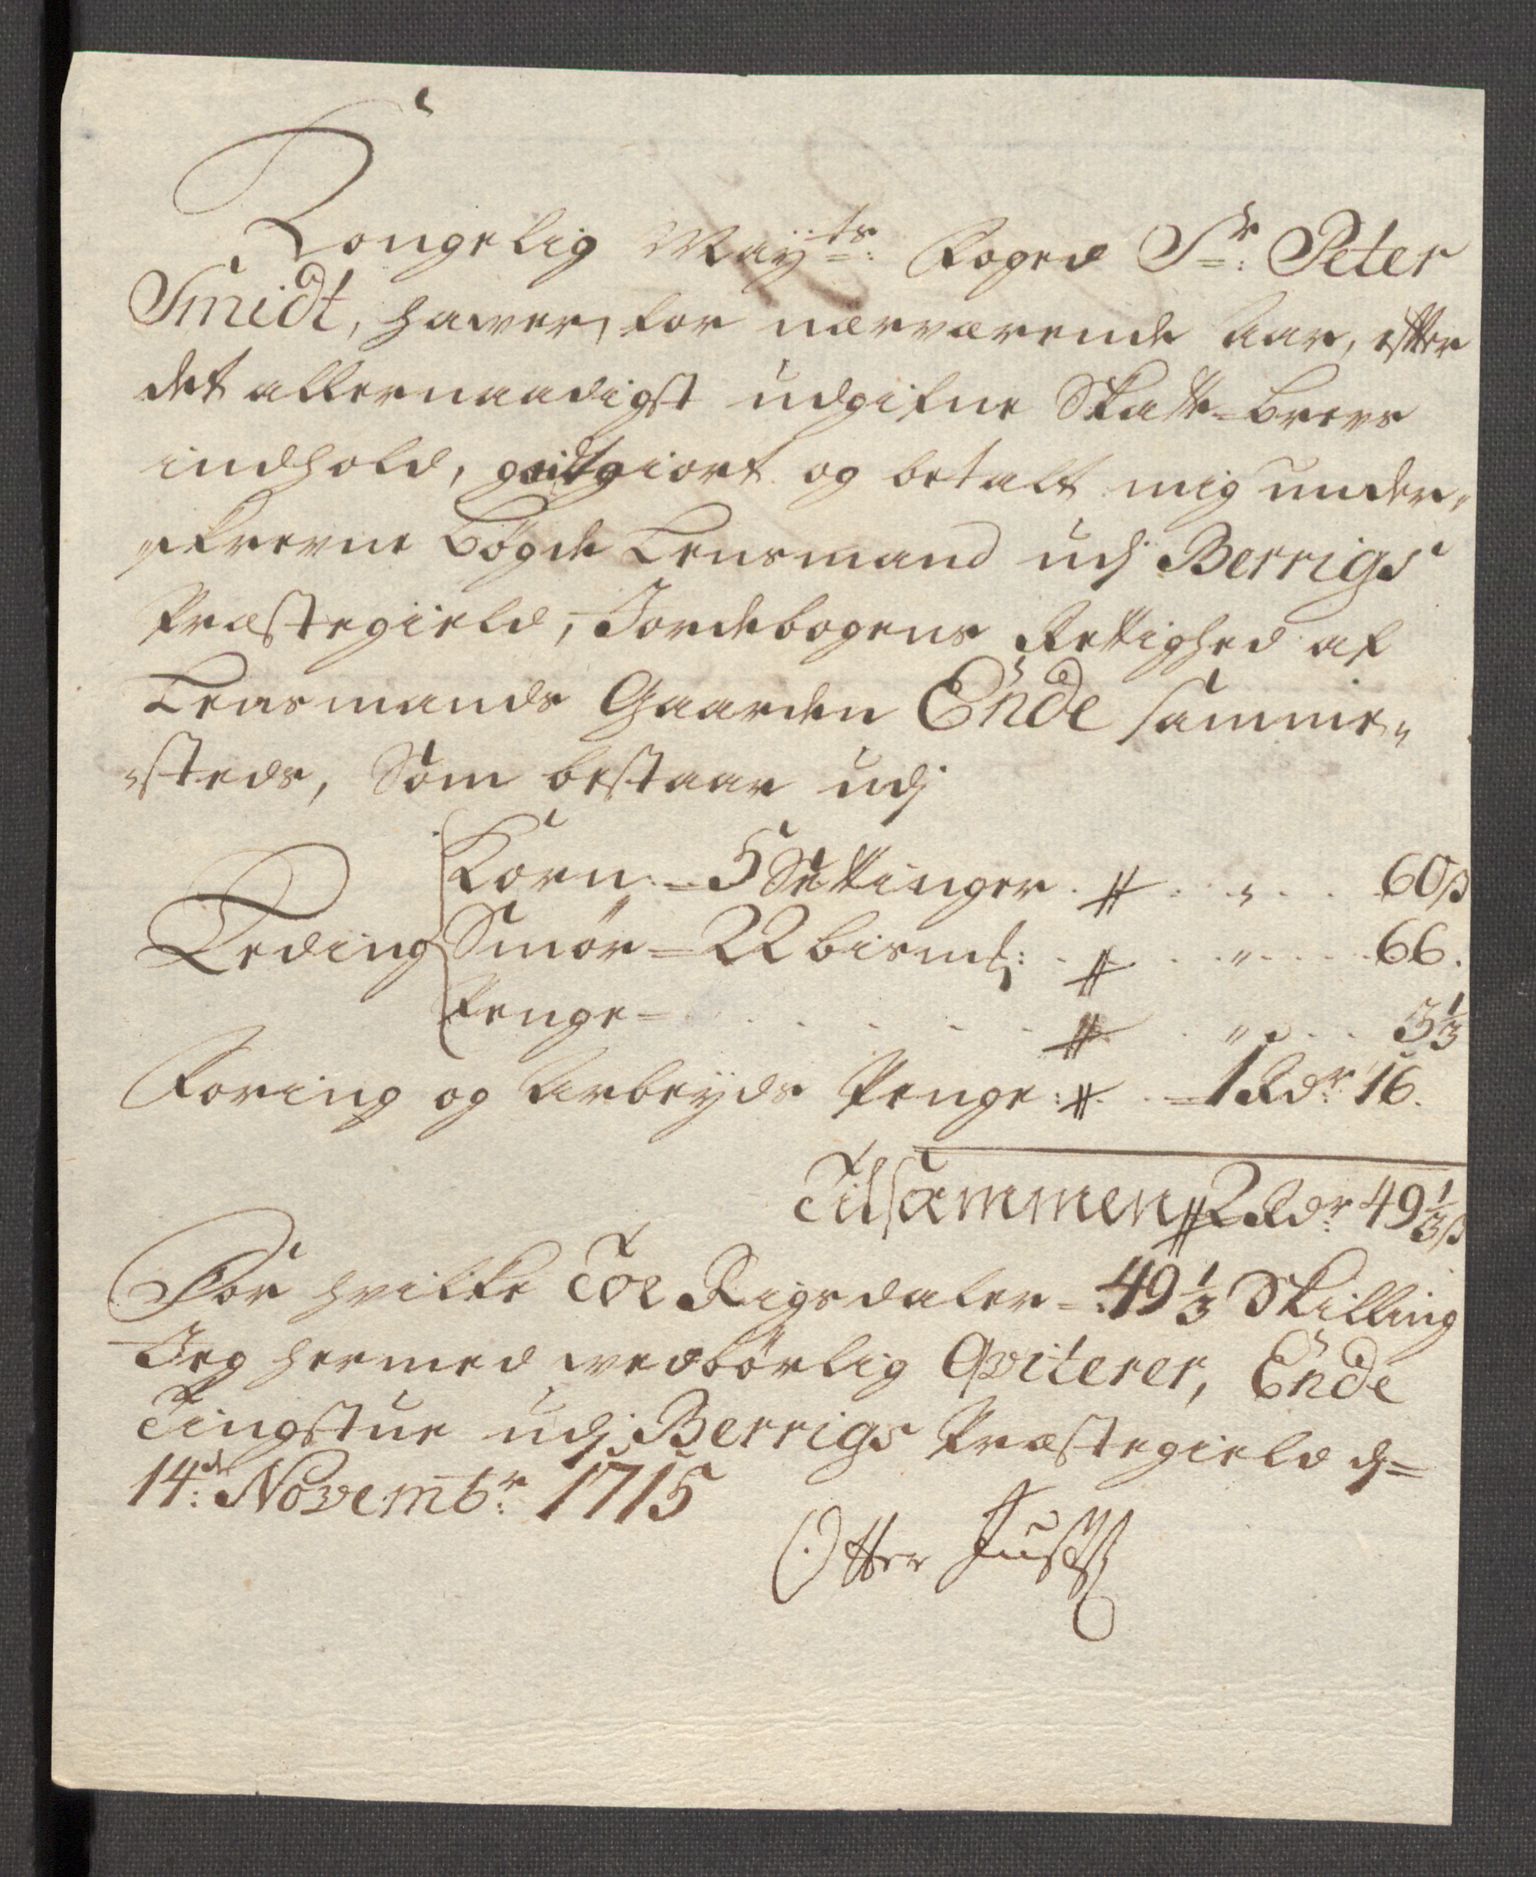 Kongelig Maÿts: Foged Sr: Peter
Smidt, hawer, for nærværende Aar, efter
det allernaadigst udgifne Skatte-brevs
indhold, godtgiort og betalt mig under„
„skrevne Bøgde Lensmand udj Berrigs
Præstegield, Jordebogens Rettighed af
Lensmands Gaarden Ende samme„
„steds, Som bestaar udj
Korn:=5 Settinger . # . . „ . . . 60ß
Leding Smør=22 bismk: . # . . „ . . . 66.
Penge= . . . . # . „ . . . 3 1/3
Foring og Arbeÿds Penge: # . =1 Rdr 16.
Tilsammen # 2 Rdr: 49 1/3 ß
For hvilke Toe Rigsdaler=49 1/3 Skilling
Jeg hermed wedbørlig Qviterer, Ende
Tingstue udj Berrigs Præstegield d=
14de: Novembr: 1715
Otter